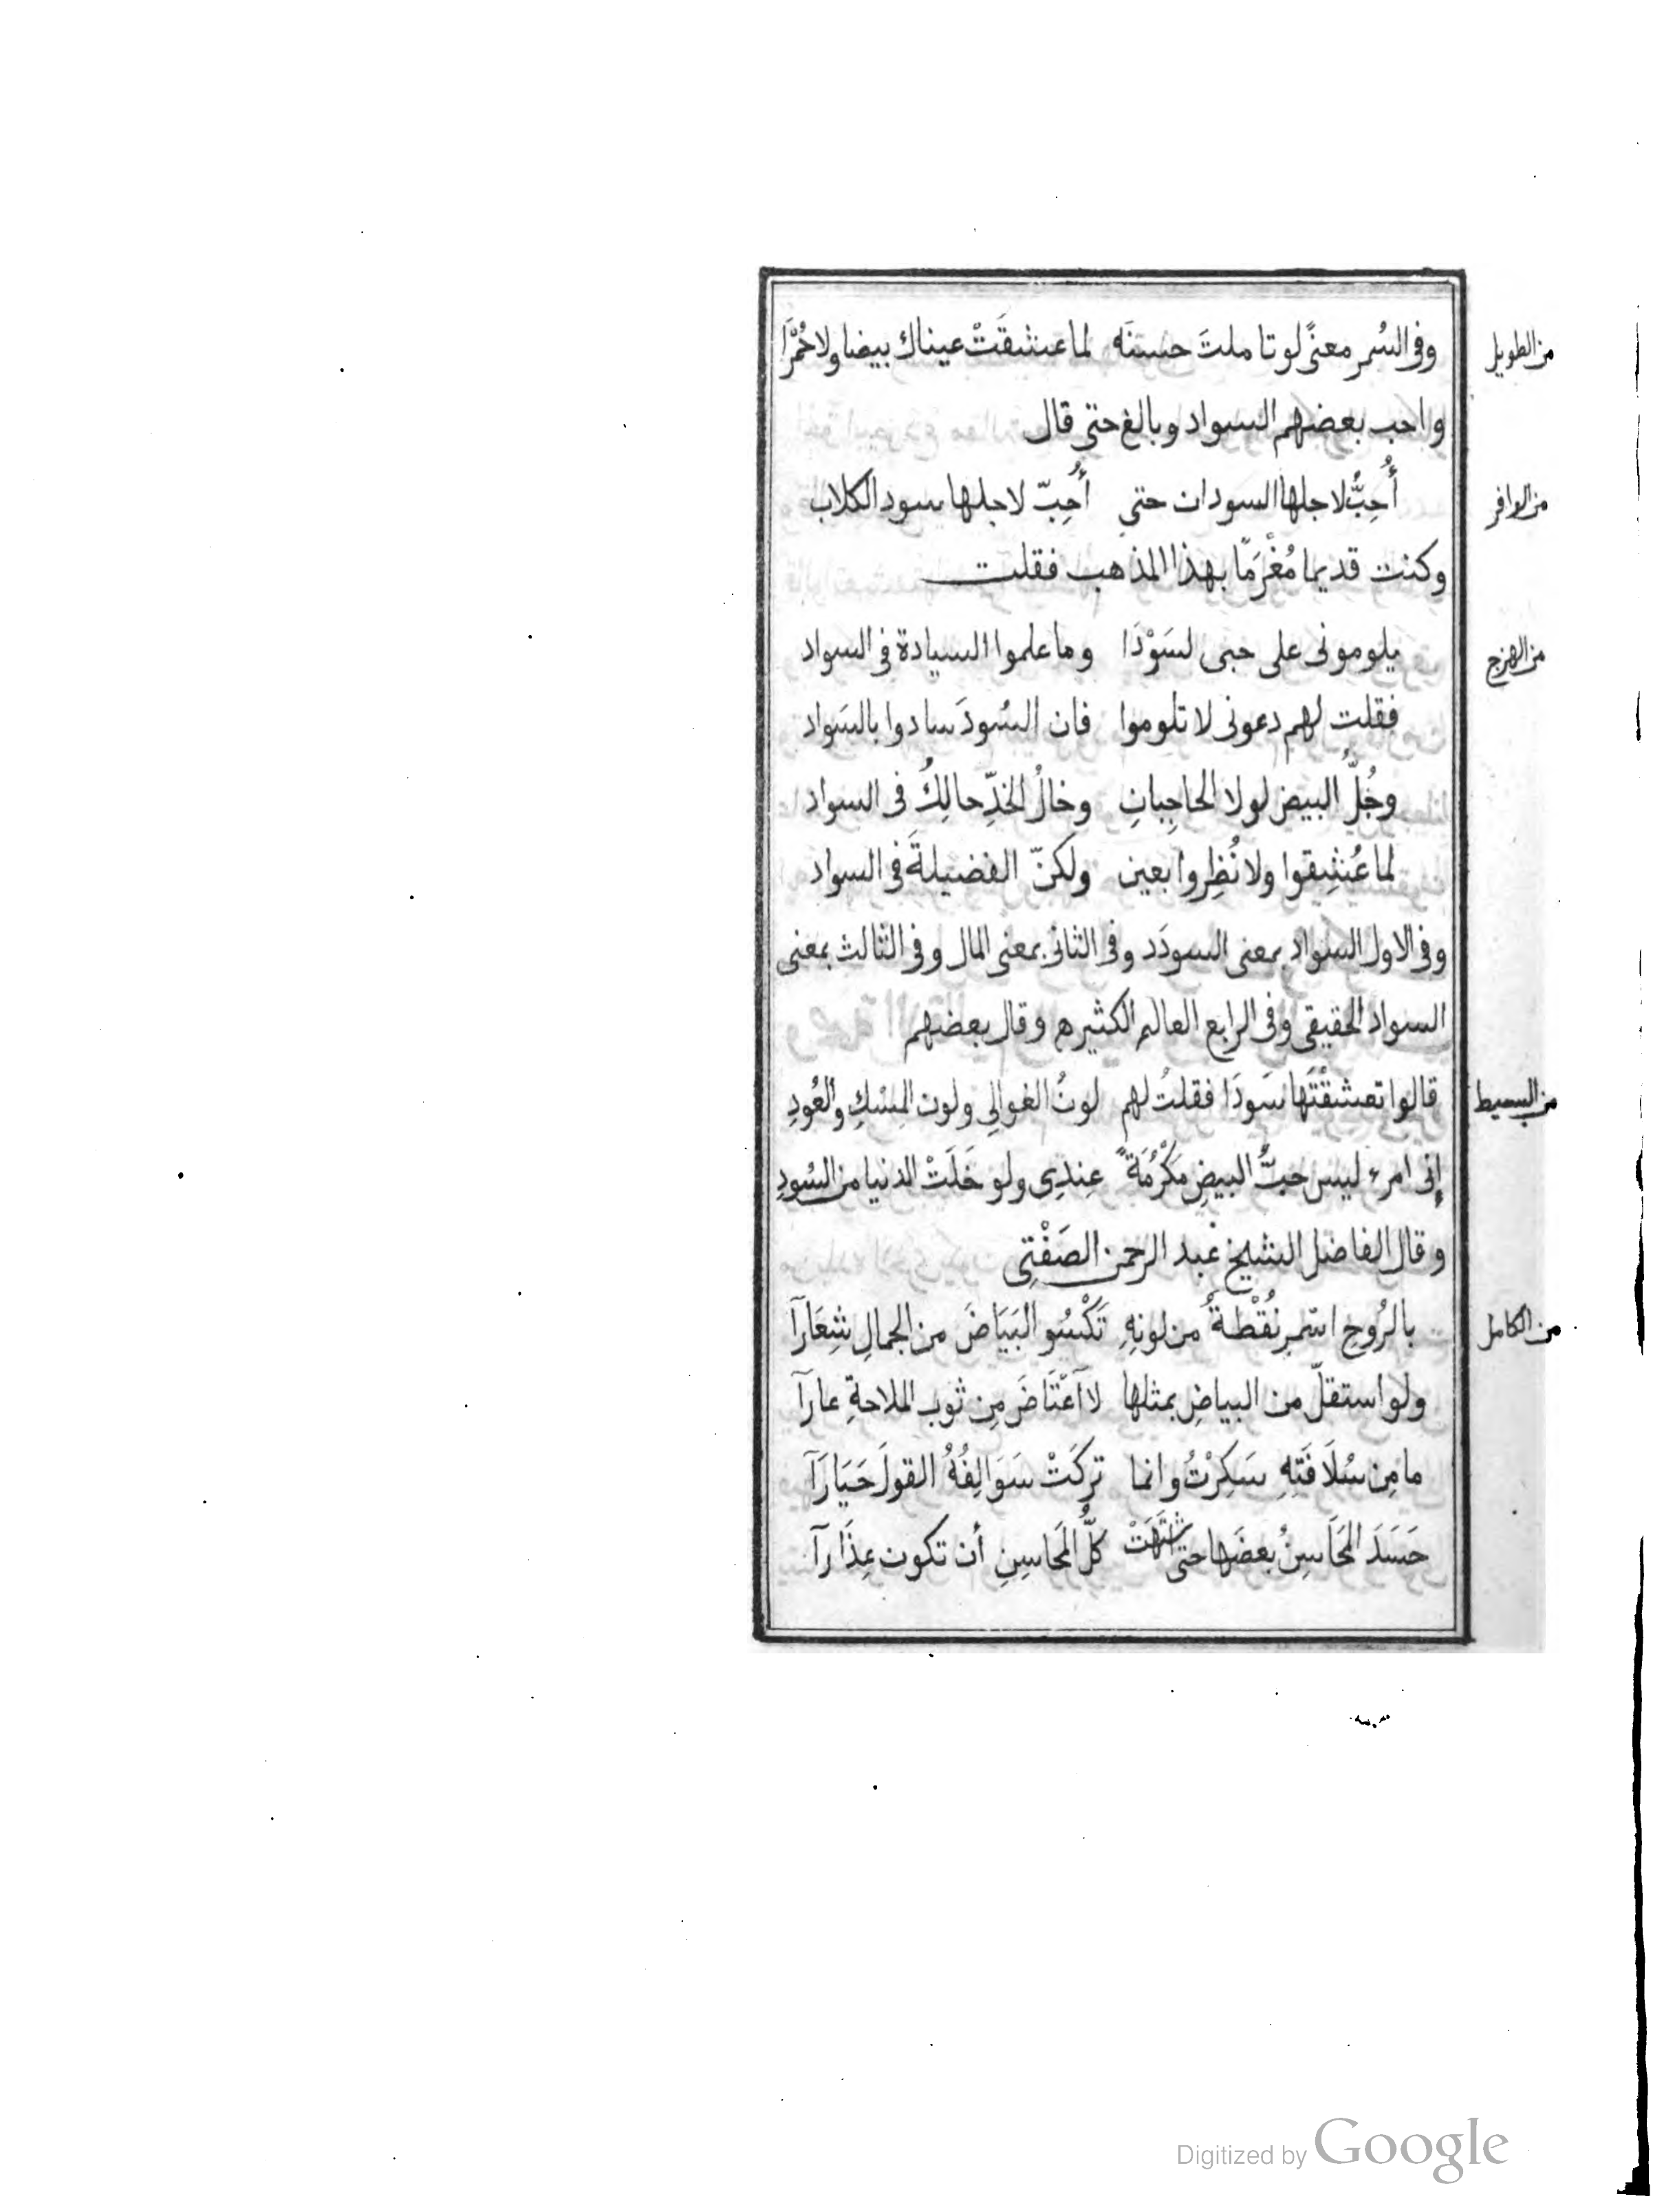 من الطويل
وفى السُمر معنًى لو تاملتَ حسنَه لما عشقَتْ عيناك بيضا ولا حُمْرَا
واحب بعضهم السواد وبالغ حتى قال
من الوافر
أُحِبُّ لاجلها السودان حتى أُحِبّ لاجلها سود الكلاب
وكنت قديما مُغْرَمًا بهذا المذهب فقلت
من الهزج
يلومونى على حبى لسَوْدَا وما علموا السيادة فى السواد
فقلت لهم دعونى لا تلوموا فان السُودَ سادوا بالسَواد
وجُلُّ البيض لولا الحاجِبانِ وخالُ الخدِّ حالِكُ فى السواد
لما عُشِقوا ولا نُظِروا بعين ولكنّ الفضيلةَ فى السواد
وفى الاول السواد بمعنى السودَد وفى الثانى بمعنى المال وفى الثالث بمعنى
السواد الحقيقى وفى الرابع العالم الكثيره وقال بعضهم
من البسيط
قالوا تعشقْتَها سَودَا فقلتُ لهم لونُ الغوالِى ولون المِسْكِ والعُودِ
إنى امرء ليس حبُّ البيضِ مَكْرُمَةً عِندِى ولو خَلَتْ الدنيا من السُودِ
وقال الفاضل الشيخ عبد الرحمن الصَفْتِى
من الكامل
بالرُوحِ اسْمر نُقْطةٌ من لونِهِ تَكْسُو البَيَاضَ من الجمالِ شِعَارَآ
ولو استقلّ من البياضِ بمثلها لآعْتَاضَ مِن ثوب الملاحةِ عارآ
ما مِن سُلَافَتِهِ سَكِرْتُ وانما تركَتْ سَوَالِفُهُ القولَ حَيَارَآ
حَسَدَ المَحَاسِنُ بعضَها حتى اشْتَهَتْ كلُّ المَحَاسِنِ أن تكون عِذَارآ
Digitized by Google